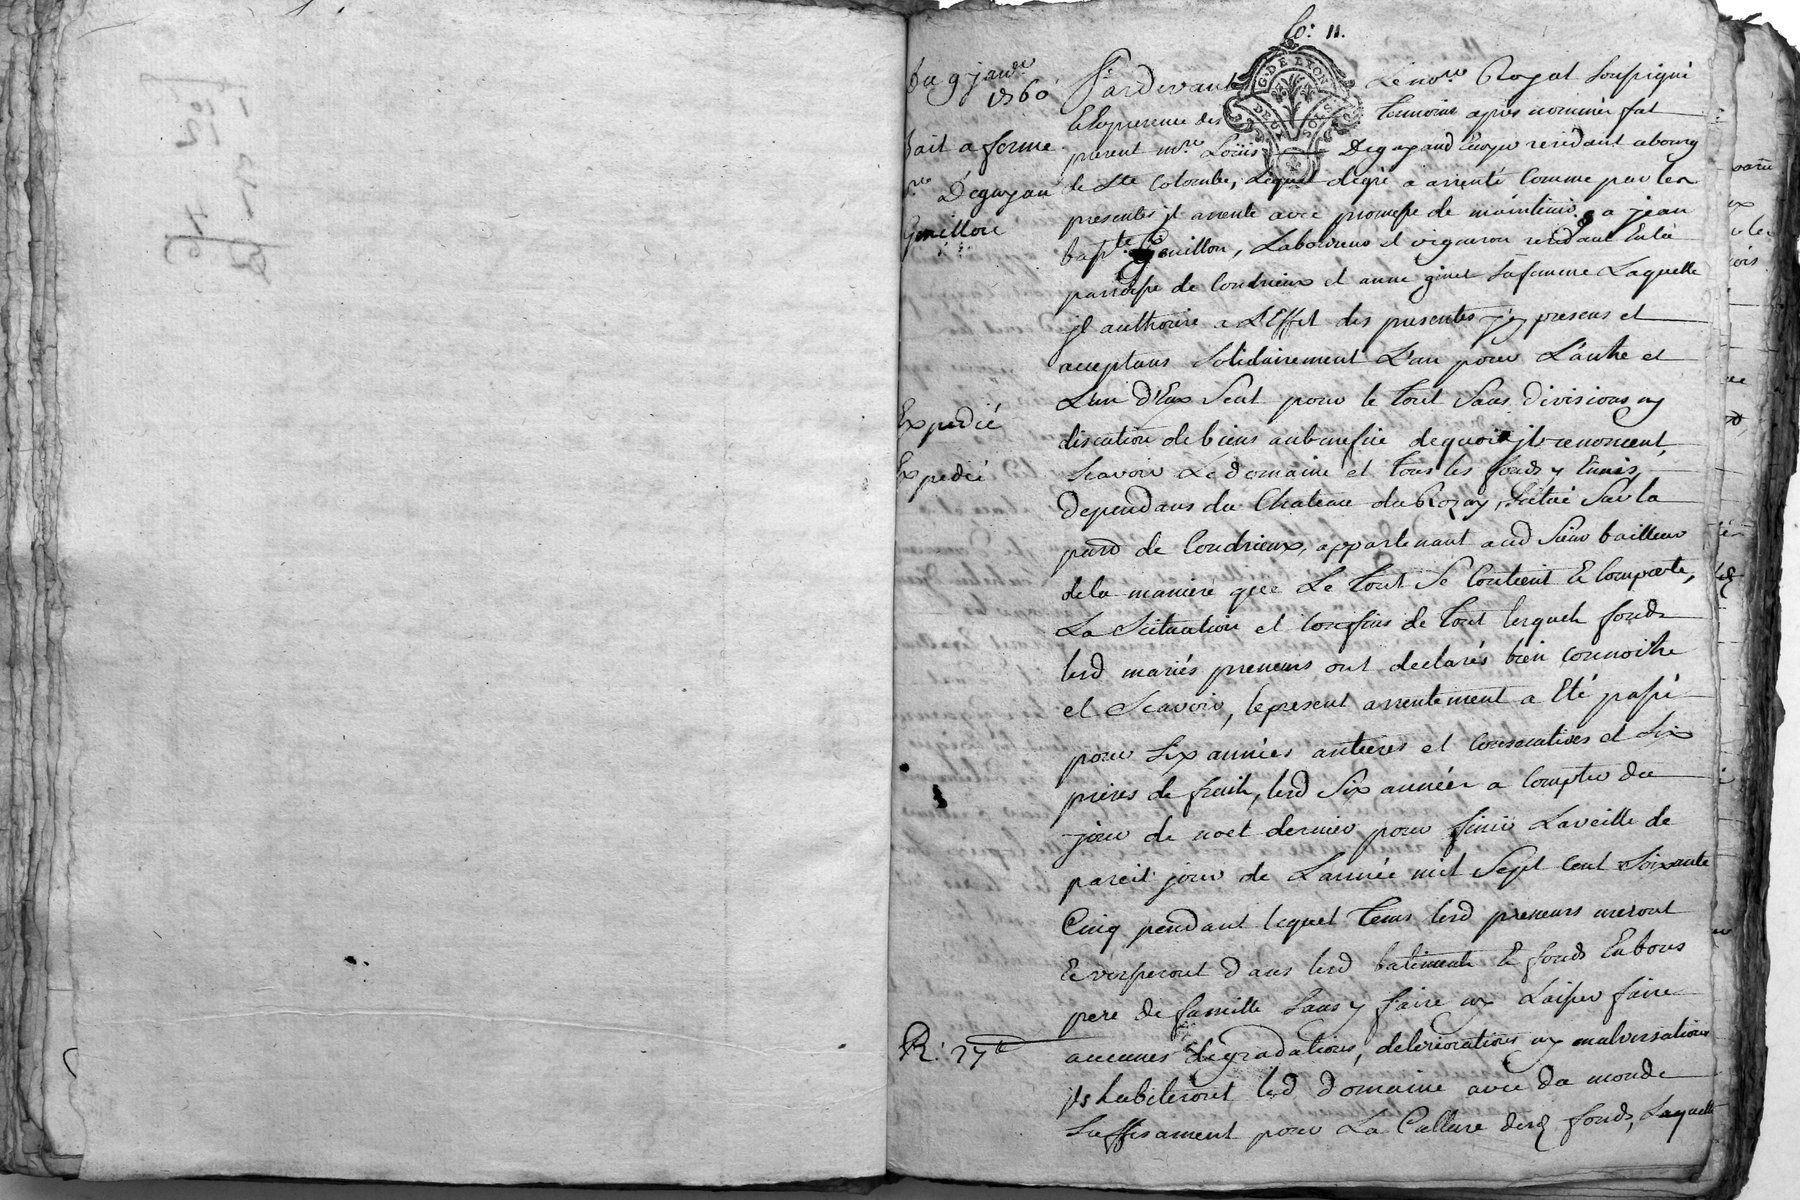 fo: 11.
Du 9 janv.re
1760
Bail a ferme
Degayan
Genillon
Expedié
Expedié
R: 27
G. DE LYON
DEUX SOLS
Pardevant Le no.re Royal soussigné
Et En presence des temoins après nommés fut
present m.re Loüis Degayand Ecuyer residant au bourg
de Ste Colombe, Lequel degré a arrenté Comme par les
presentes jl arrente avec promesse de maintenir a jean
bap.te Genillon, Laboureur et vigneron residant En la
parroisse de Condrieux et anne ginet Sa femme Laquelle
jl authorise a L'Effet des presentes jcy presens et
acceptans solidairement L'un pour L'autre et
L'un d'Eux Seul pour le tout Sans divisions ny
discution de biens au benefice dequoi jls renoncent,
Scavoir Le domaine et tous les fonds y Einis,
dependans du Chateau du Rozay, scitué Sur la
par.d de Condrieux, appartenant aud Sieur bailleur
de la maniere que Le tout Se Contient Et Comporte,
La Scituation et Confins de tout lesquels fonds
lesd mariés preneurs ont declarés bien connoitre
et Scavoir, le present arrentement a Eté passé
pour Six années antieres et Consecutives et Six
prises de fruits, lesd Six années a Compter du
jour de noel dernier pour finir La veille de
pareil jour de L'année mil Sept Cent Soixante
Cinq pendant lequel tems lesd preneurs useront
Et verseront dans lesd batiments Et fonds En bons
pere de famille Sans y faire ny Laisser faire
aucunes degradations, deteriorations ny malversations
jls habiteront led Domaine avec du monde
Suffisament pour La Culture desd fonds, Laquelle